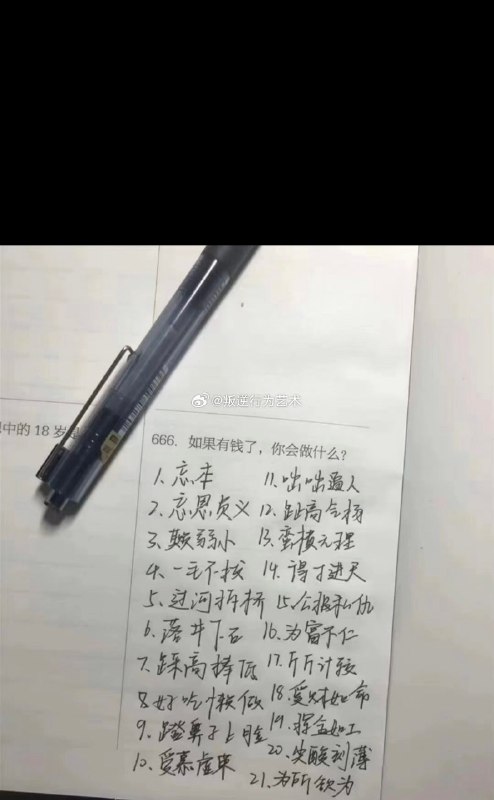 @叛逆行为艺术
中的18岁是
666. 如果有钱了，你会做什么？
1. 忘本
2. 忘恩负义
3. 欺弱小
4. 一毛不拔
5. 过河拆桥
6. 落井下石
7. 踩高捧低
8. 好吃懒做
9. 蹬鼻子上脸
10. 爱慕虚荣
11. 咄咄逼人
12. 趾高气扬
13. 蛮横无理
14. 得寸进尺
15. 公报私仇
16. 为富不仁
17. 斤斤计较
18. 爱财如命
19. 挥金如土
20. 尖酸刻薄
21. 为所欲为